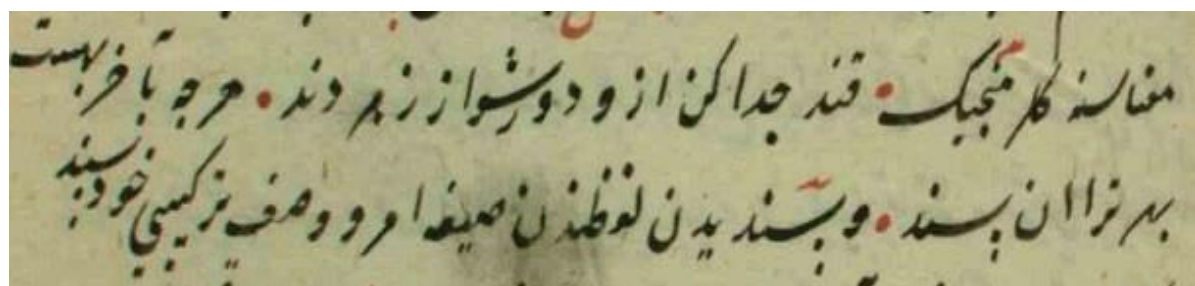 معناسنه كلر منجیك • قند جدا كن ازو دور شو از زهر دند • هرچه بآخر بهست
بهر ترا آن پسند • و پسندیدن لفظندن صیغه امر و وصف تركیبی خودپسند